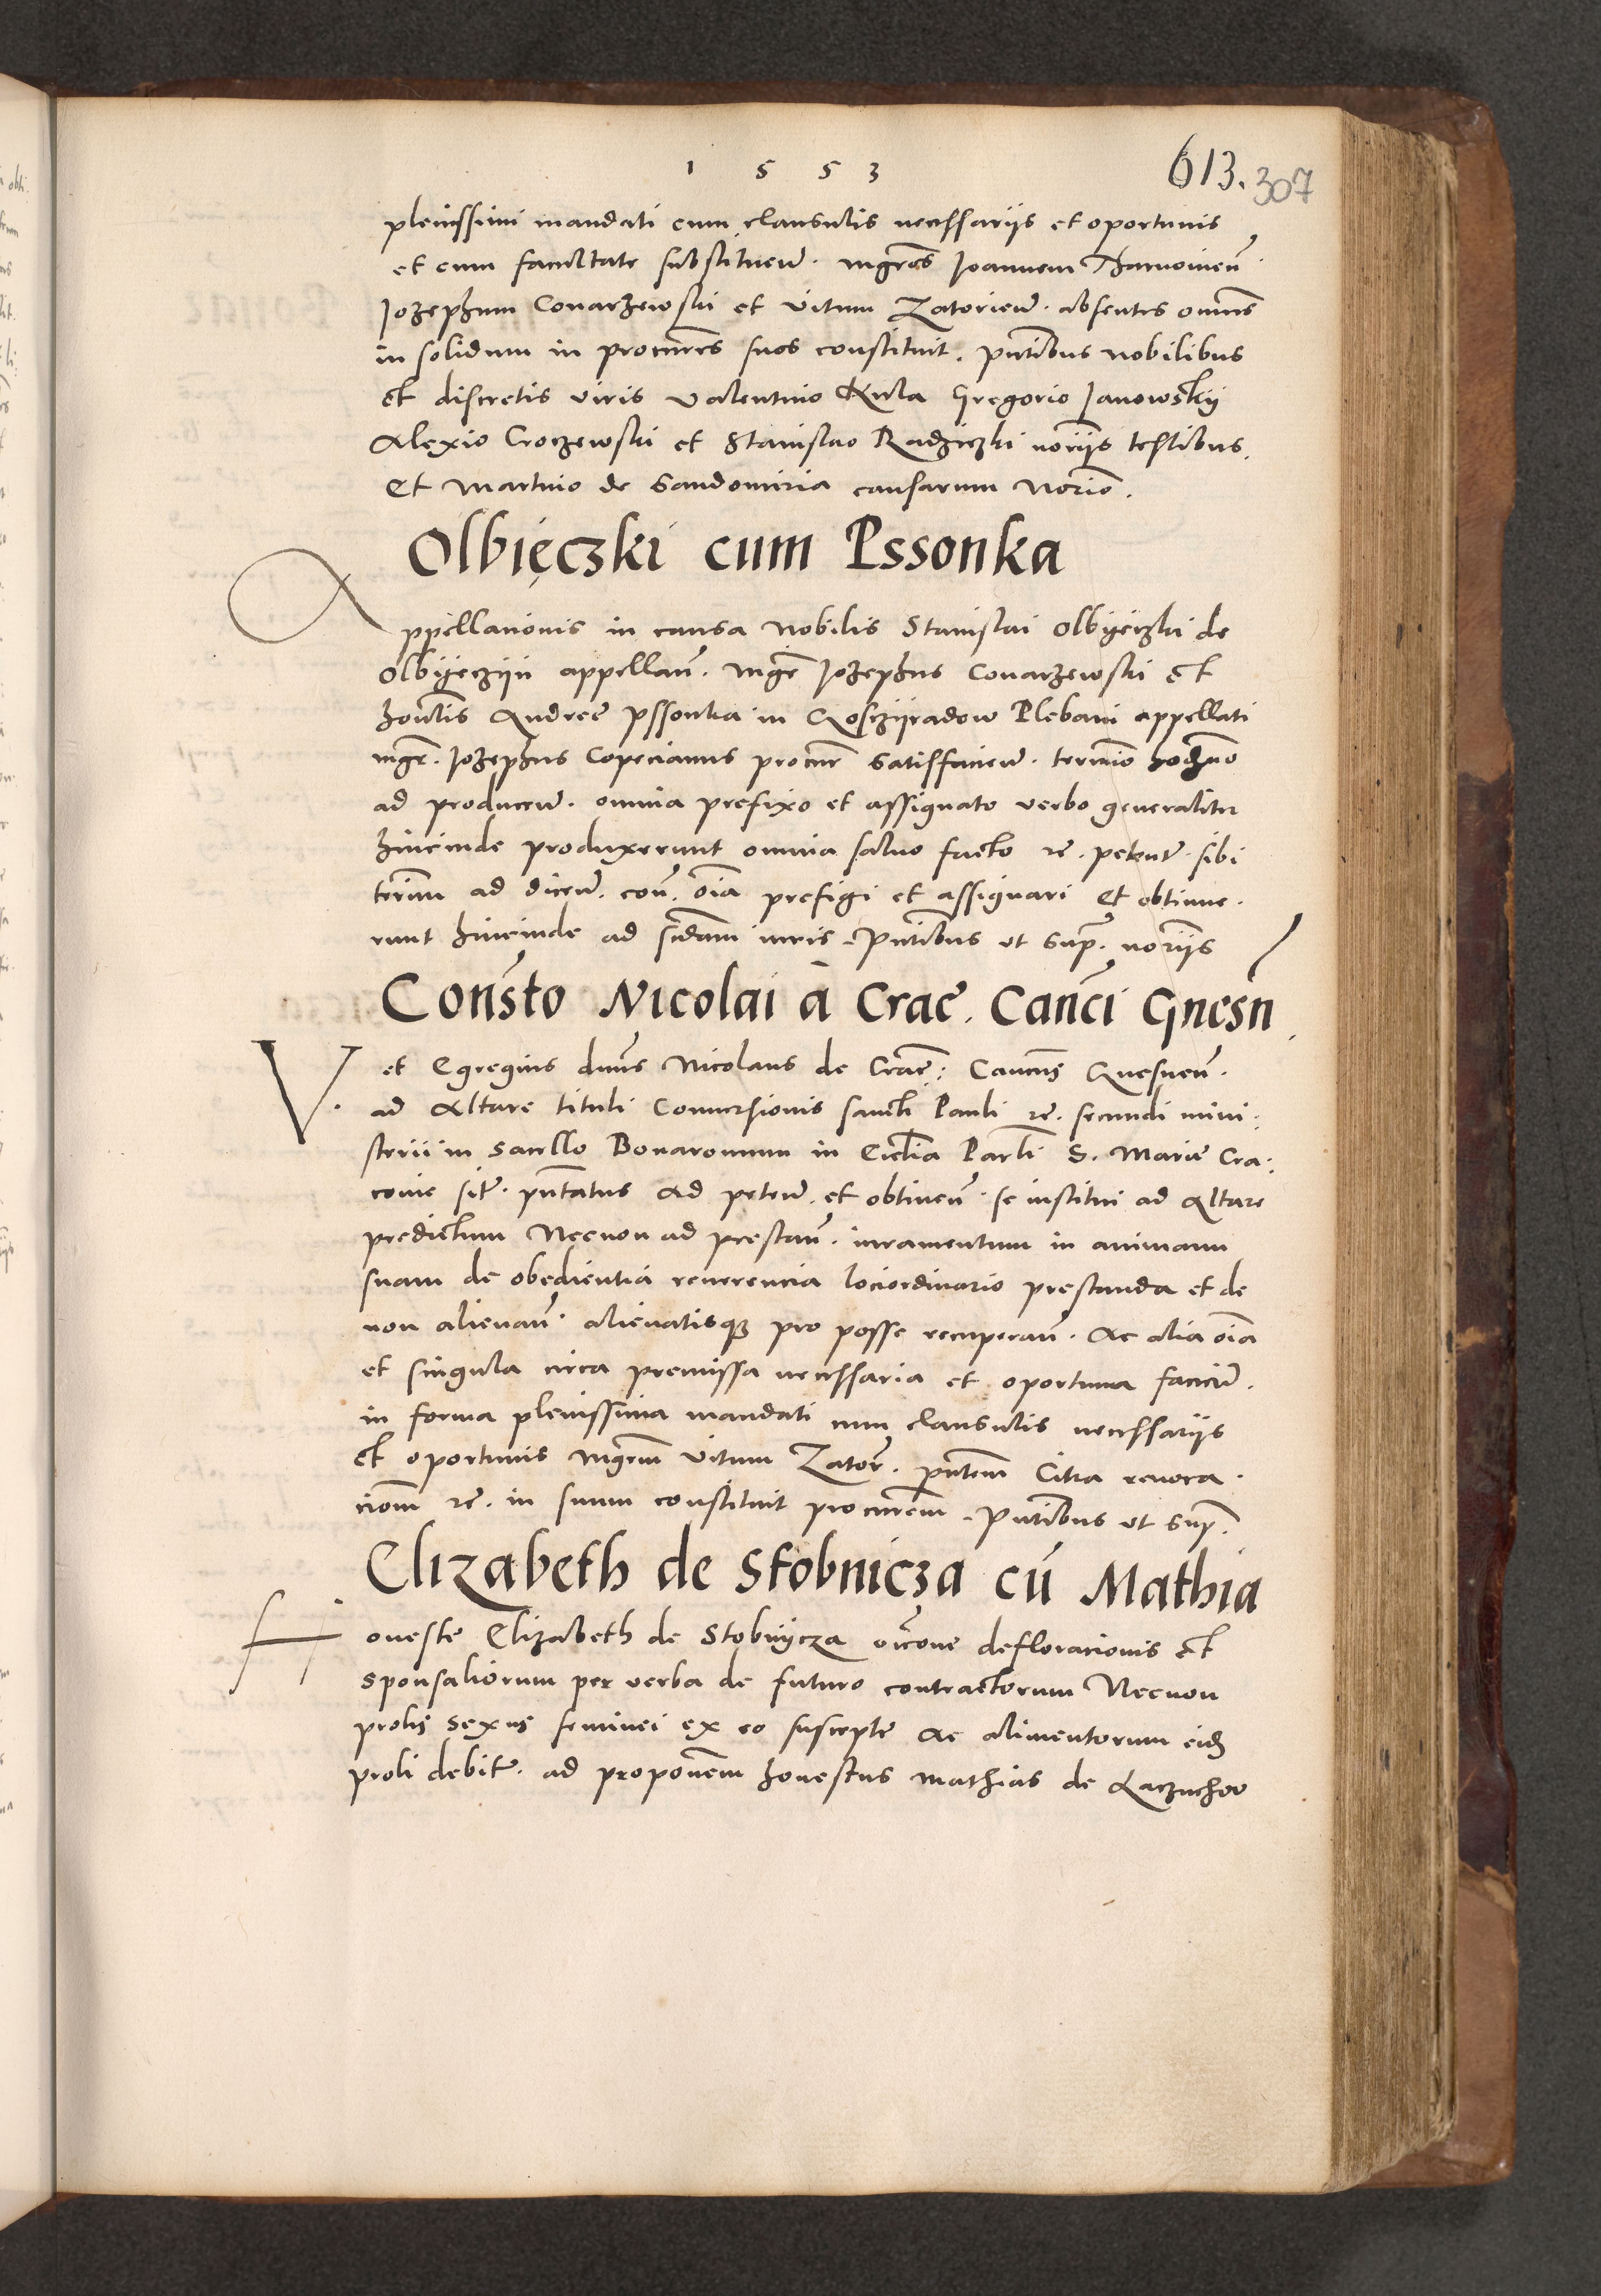 1 5 5 3
613. 307
plenissimi mandati cum clausulis necessariis et oportunis
et cum facultate substituen̄. mgr̄os Joannem Tharnovien̄
Jozephum Conarzewski et Vitum Zatorien̄. absentes omnes
in solidum in procur̄es suos constituit. pn̄tibus nobilibus
et discretis viris Valentino Kula Gregorio Janowskij
Alexio Croczewski et Stanislao Radziczki nor̄iis testibus.
Et Martino de Sandomiria causarum nor̄io.
Olbięczki cum Pssonka
Appellationis in causa Nobilis Stanislai Olbijeczki de
Olbijeczijn appellan̄. mgr̄ Jozephus Conarzewski Et
hon̄lis Andree Pssonka in Gosczijradow Plebani appellati
mgr̄. Jozephus Copecianus procur̄ satisfacien̄. termīo hodīno
ad producen̄. omnia prefixo et assignato verbo generaliter
hincinde produxerunt omnia saluo facto rc̄. petentes sibi
terīm ad dicen̄. con̄. oīa prefigi et assignari Et obtinue-
runt hincinde ad sc̄dam iuris. Pn̄tibus ut sup̄. nor̄iis
Consto Nicolai à Crac̄. Canc̄i Gnesn̄
V. et Egregius dn̄us Nicolaus de Crac̄: Can̄cus Gnesnen̄.
ad Altare tituli Conuersionis sancti Pauli rc̄. secundi mini-
sterii in Sacello Bonaronum in Ecc̄lia Par̄li S. Marie Cra-
couie sit̄. pn̄tatus ad peten̄. et obtinen̄. se institui ad Altare
predictum Necnon ad prestan̄. iuramentum in animam
suam de obedientia reuerencia lociordinario prestanda et de
non alienan̄. alienatisq3 pro posse recuperan̄. Ac alia oīa
et singula circa premissa necessaria et oportuna facien̄.
in forma plenissima mandati cum clausulis necessariis
et oportunis Mgr̄um Vitum Zator̄. pn̄tem Citra reuoca-
cionem rc̄. in suum constituit procur̄em. Pn̄tibus ut sup̄.
Elizabeth de Stobnicza cū Mathia
Honeste Elizabeth de Stobnijcza occ̄one defloracionis et
sponsaliorum per verba de futuro contractorum Necnon
prolis sexus feminei ex eo suscepte Ac alimentorum eid̄
proli debit̄. ad proponen̄m honestus Mathias de Laczuchow